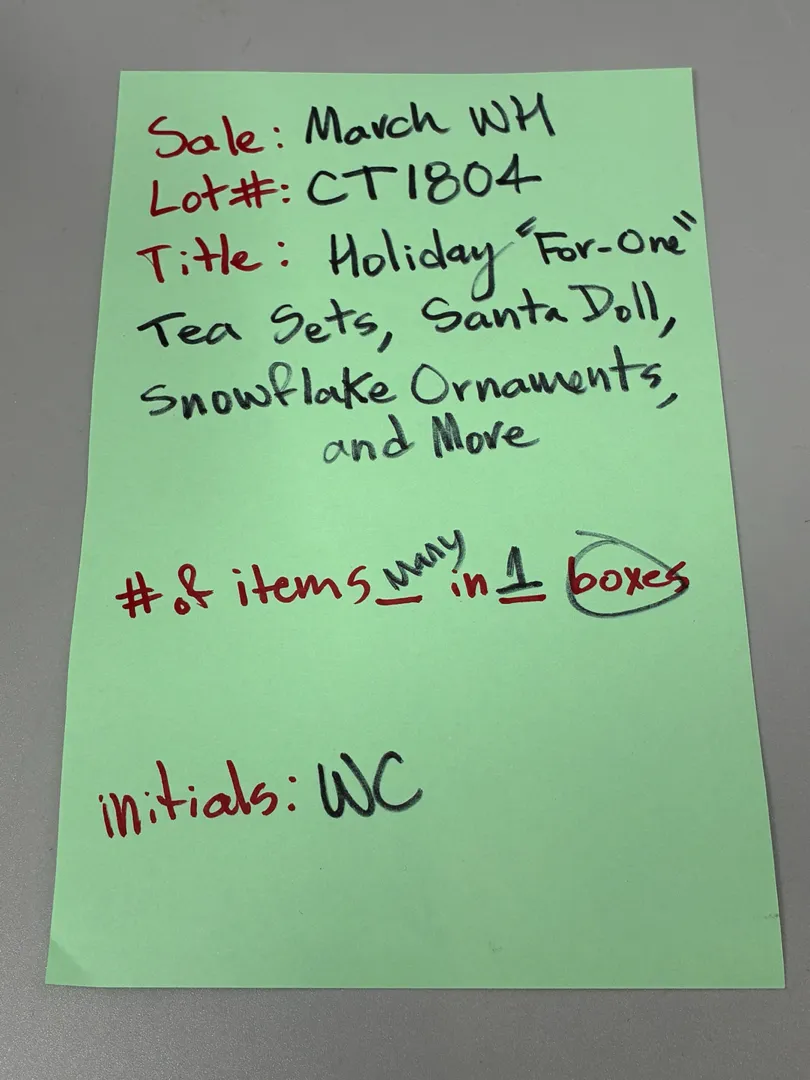 Sale: March WH
Lot#: CT1804
Title: Holiday "For-One"
Tea Sets, Santa Doll,
Snowflake Ornaments,
and More
# of items many in 1 boxes
initials: WC